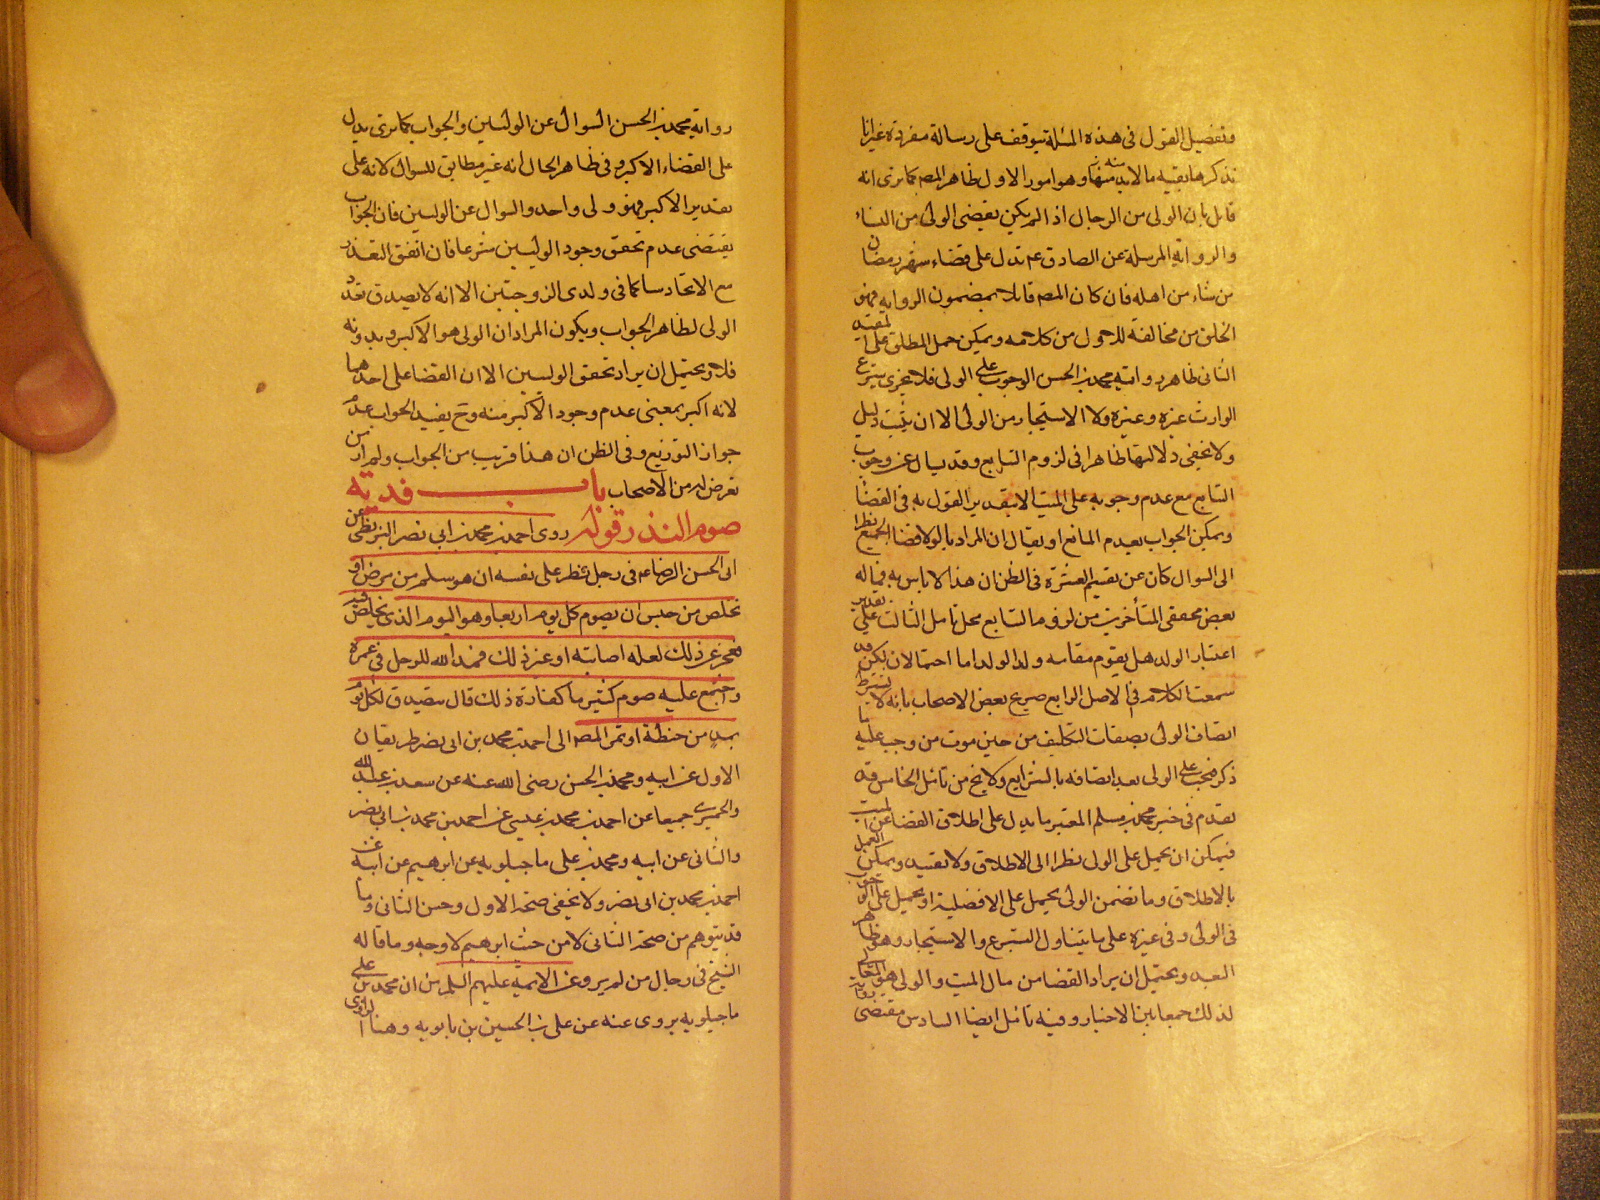 وتفصيل القول في هذه المسئلة يتوقف على رسالة مفردة غير انا
نذكرها بقية ما لابد منه وهو امور الاول ظاهر المصـ كما ترى انه
قائل بان الولى من الرجال اذا لم يكن يقضى الولى من النساء
والرواية المرسلة عن الصادق عم تدل على قضاء شهر رمضان
من شاء من اهله فان كان المصـ قائلا بمضمون الرواية فهو
الظن من مخالفة للاصول من كلامه ويمكن حمل المطلق على المقيد
الثانى ظاهر رواية محمد بن الحسن الوجوب على الولى فلا يجزى تبرع
الوارث غيره وغيره ولا الاستيجار من الولى الا ان يثبت دليل
ولا يخفى دلالتها ظاهرا فى لزوم التتابع وقد يسال عن وجوب
التتابع مع عدم وجوبه على الميت الا بتقدير القول به فى القضا
ويمكن الجواب بعدم المانع او يقال ان المراد بالولا قضا الجميع نظرا
الى السوال كان عن تقسيم العشرة فى الظن ان هذا لا باس به فما قاله
بعض محققى المتأخرين من لزوم التتابع محل تامل الثالث على تقدير
اعتبار الولد هل يقوم مقامه ولد الولد اما احتمالان لكن قد
سمعنا كلامه فى الاصل الرابع صريح بعض الاصحاب بانه لا يشترط
اتصاف الولى بصفات التكليف من حين موت من وجب عليه ما
ذكر فيجب على الولى بعد اتصافه بالشرايع ولا يخ من تامل الخامس قد
تقدم فى خبر محمد بن مسلم المعتبر ما يدل على اطلاق القضا عن الميت
فيمكن ان يحمل على الولى نظرا الى الاطلاق ولا تقييد ويمكن العمل
بالاطلاق وما تضمن الولى يحمل على الافضلية او يحمل على الوجوب
فى الولى وفى غيره على ما يتناول التبرع والاستيجار وهو ظاهر
البعد ويحتمل ان يراد القضا من مال الميت والولى هو المتعاطى
لذلك جمعا بين الاخبار وفيه تامل ايضا السادس مقتضى رواية
رواية محمد بن الحسن السوال عن الوليين والجواب كما ترى يدل
على القضاء الاكبر وفى ظاهر الحال انه غير مطابق للسوال لانه على
تقدير الاكبر فهو ولى واحد والسوال عن الوليين فان الجواب
يقتضى عدم تحقق وجود الوليين شرعا فان اتفق التعدد
مع الاتحاد سنا كما فى ولدى الزوجتين الا انه لا يصدق تعدد
الولى لظاهر الجواب ويكون المراد ان الولى هو الاكبر وبدونه
فلا ويحتمل ان يراد تحقق الوليين الا ان القضا على احدهما
لانه اكبر بمعنى عدم وجود الاكبر منه وح يفيد الجواب عدم
جواز التوزيع وفى الظن ان هذا قريب من الجواب ولم ار من
تعرض له من الاصحاب باب فدية
صوم النذر قوله روى احمد بن محمد بن ابى نصر البزنطى عن
ابى الحسن الرضا عم فى رجل نظر على نفسه ان هو سلم من مرض او
تخلص من حبس ان يصوم كل يوم اربعا وهو اليوم الذى يخلص فيه
فعجز عن ذلك لعلة اصابته او غير ذلك فمد الله للرجل فى عمره
واجتمع عليه صوم كثير ما كفارة ذلك قال يتصدق لكل يوم
بمد من حنطة او تمر المصـ الى احمد بن محمد بن ابى نصر طريقان
الاول عن ابيه ومحمد بن الحسن رضى الله عنه عن سعد بن عبد الله
والحميرى جميعا عن احمد بن محمد بن عيسى عن احمد بن محمد بن ابى نصر
والثانى عن ابيه ومحمد بن على ماجيلويه عن ابرهيم عن ابيه عن
احمد بن محمد بن ابى نصر ولا يخفى صحة الاول وحسن الثانى وما
قد يتوهم من صحة الثانى لا من حيث ابرهيم لا وجه وما قاله
الشيخ فى رجال من لم يرو عن الائمة عليهم السلم من ان محمد بن على
ماجيلويه يروى عنه عن على بن الحسين بن بابويه وهنا الراوى